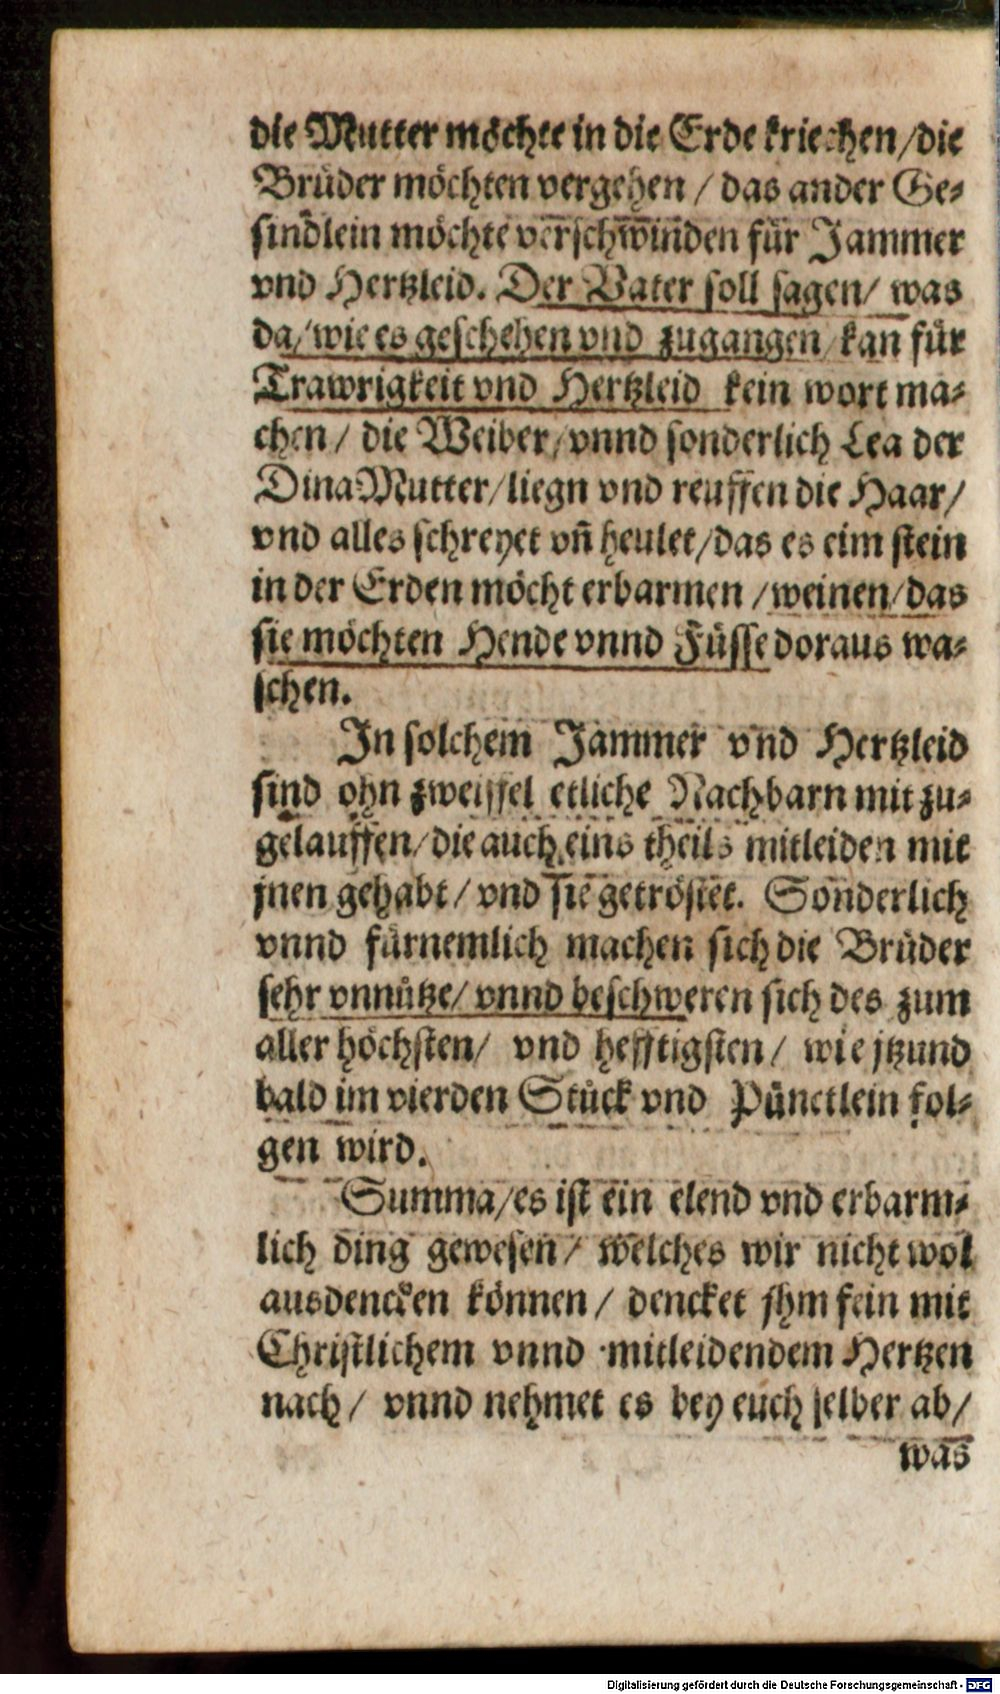 die Mutter möchte in die Erde kriechen/die
Brüder möchten vergehen / das ander Ge-
sindlein möchte verschwinden für Jammer
vnd Hertzleid. Der Vater soll sagen/ was
da/wie es geschehen vnd zugangen/ kan für
Trawrigkeit vnd Hertzleid kein wort ma-
chen/ die Weiber/vnnd sonderlich Lea der
Dina Mutter/liegn vnd reuffen die Haar/
vnd alles schreyet vñ heulet/das es eim stein
in der Erden möcht erbarmen /weinen/das
sie möchten Hende vnnd Füsse doraus wa-
schen.
In solchem Jammer vnd Hertzleid
sind ohn zweiffel etliche Nachbarn mit zu-
gelauffen/die auch eins theils mitleiden mit
jnen gehabt/ vnd sie getröstet. Sonderlich
vnnd fürnemlich machen sich die Brüder
sehr vnnütze/ vnnd beschweren sich des zum
aller höchsten/ vnd hefftigsten/ wie jtzund
bald im vierden Stück vnd Pünctlein fol-
gen wird.
Summa/es ist ein elend vnd erbarm-
lich ding gewesen/ welches wir nicht wol
ausdencken können/ dencket jhm fein mit
Christlichem vnnd mitleidendem Hertzen
nach/ vnnd nehmet es bey euch selber ab/
was
Digitalisierung gefördert durch die Deutsche Forschungsgemeinschaft - DFG